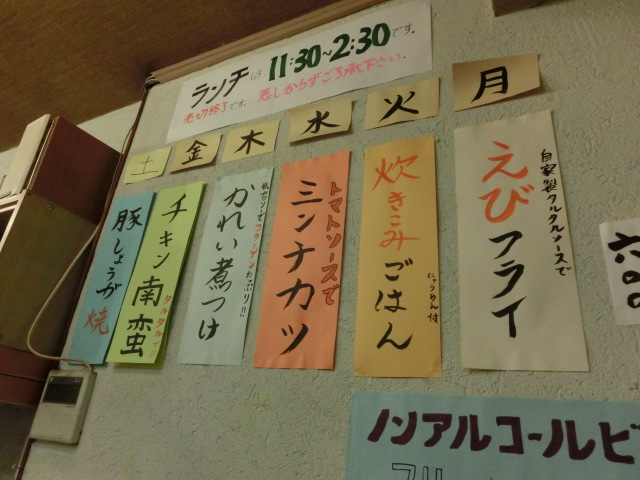 ランチは 11:30~2:30です。
売切終了です。悪しからずご了承下さい。
月
えびフライ
自家製タルタルソースで
火
炊きこみごはん
にゅうめん付
水
トマトソースで
ミンチカツ
木
低カロリーでコラーゲンたっぷり!!
かれい煮つけ
金
チキン南蛮
タルタル
土
豚しょうが焼
ノンアルコールビ
フリー